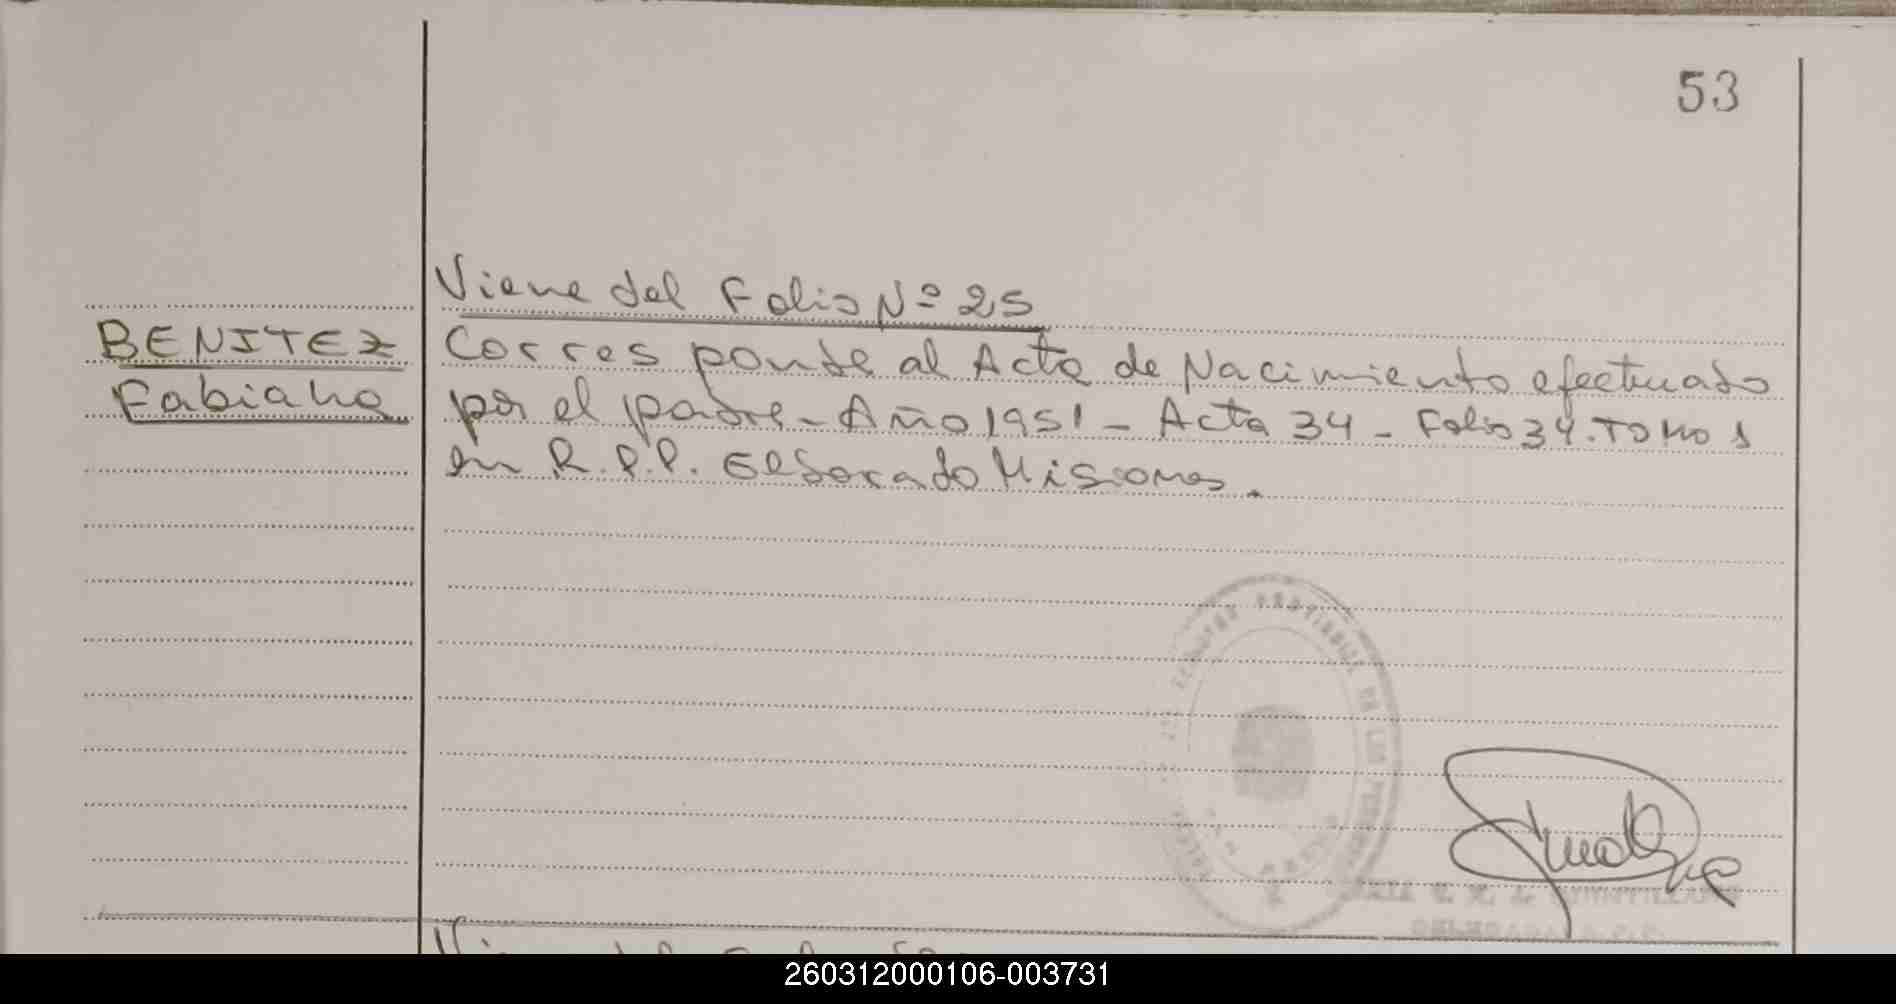 53
Viene del Folio Nº 25
BENITEZ
Corresponde al Acta de Nacimiento efectuado
Fabiana
por el padre - Año 1951 - Acta 34 - Folio 34. Tomo 1
en R.P.P. Eldorado Misiones.
PROVINCIAL DE LAS PERSONAS
260312000106-003731